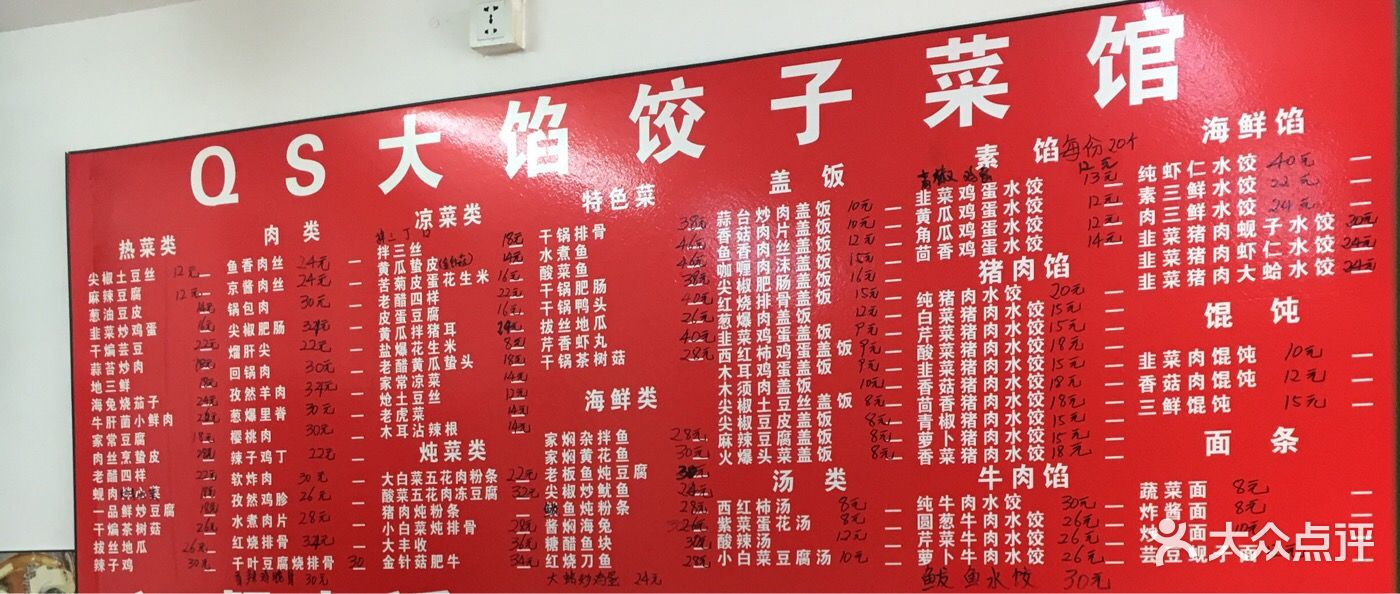 QS大馅饺子菜馆
热菜类
尖椒土豆丝 12元
麻辣豆腐 12元
葱油豆皮
韭菜炒鸡蛋
干煸芸豆 22元
蒜苔炒肉
地三鲜
海兔烧茄子
牛肝菌小鲜肉
家常豆腐 18元
肉丝烹蛰皮
老醋四样 22元
一品鲜炒豆腐
干煸茶树菇 26元
拔丝地瓜 26元
辣子鸡 30元
肉 类
鱼香肉丝 24元
京酱肉丝 24元
锅包肉 30元
尖椒肥肠 32元
熘肝尖 22元
回锅肉 30元
孜然羊肉 34元
葱爆里脊 30元
樱桃肉 30元
辣子鸡丁 22元
软炸肉 30元
孜然鸡胗 26元
水煮肉片 28元
红烧排骨 32元
千叶豆腐烧排骨 30
30元
凉菜类
拌三丝 18元
黄瓜蛰皮 14元
苦菊皮蛋花生米 16元
老醋四样 22元
皮蛋豆腐 16元
黄瓜拌猪耳
盐爆花生米 8元
老醋黄瓜蛰头 18元
家常凉菜 14元
炝土豆丝 12元
老虎菜 14元
木耳沾辣根 14元
炖菜类
大白菜五花肉粉条 22元
酸菜五花肉冻豆腐 32元
猪肉炖粉条
小白菜炖排骨 28元
大丰收 36元
金针菇肥牛 34元
特色菜
干锅排骨 38元
水煮鱼 46元
酸菜鱼 46元
干锅肥肠 38元
干锅鸭头 40元
拔丝地瓜 26元
芹香虾丸 40元
干锅茶树菇 28元
海鲜类
家焖杂拌鱼 28元
家焖黄花鱼 30元
老板鱼炖豆腐
尖椒炒鱿鱼 24元
鲅鱼炖粉条 28元
酱焖海兔 26元
糖醋鱼块
红烧刀鱼 28元
大蛤炒鸡蛋 24元
盖 饭
蒜苔炒肉盖饭 10元
香菇肉片盖饭 10元
鱼香肉丝盖饭 12元
咖喱肉沫盖饭 15元
尖椒肥肠盖饭 16元
红烧排骨盖饭 15元
葱爆肉盖饭 12元
韭菜鸡蛋盖饭 9元
西红柿鸡蛋盖饭 9元
木耳鸡蛋盖饭 9元
木须肉盖饭 10元
尖椒土豆丝盖饭 8元
尖椒豆皮盖饭 8元
麻辣豆腐盖饭 8元
火爆头菜盖饭 8元
汤 类
西红柿汤 8元
紫菜蛋花汤 8元
酸辣汤 12元
小白菜豆腐汤 10元
素 馅 每份20个
12元
韭菜鸡蛋水饺 13元
黄瓜鸡蛋水饺 12元
角瓜鸡蛋水饺 12元
茴香鸡蛋水饺 14元
猪肉馅
纯猪肉水饺 20元
白菜猪肉水饺 15元
芹菜猪肉水饺 15元
酸菜猪肉水饺 18元
韭菜猪肉水饺 15元
香菇猪肉水饺 18元
茴香猪肉水饺 18元
青椒猪肉水饺 15元
萝卜猪肉水饺 15元
18元
牛肉馅
纯牛肉水饺 30元
圆葱牛肉水饺 26元
芹菜牛肉水饺 26元
萝卜牛肉水饺 26元
鲅鱼水饺 30元
海鲜馅
纯虾仁水饺 40元
素三鲜水饺 22元
肉三鲜水饺 24元
韭菜猪肉蚬子水饺 30元
韭菜猪肉虾仁水饺 24元
韭菜猪肉大蛤水饺 24元
馄 饨
韭菜肉馄饨 10元
香菇肉馄饨 12元
三鲜馄饨 15元
面 条
蔬菜面 8元
炸酱面 8元
炒面 10元
芸豆蚬子面
大众点评